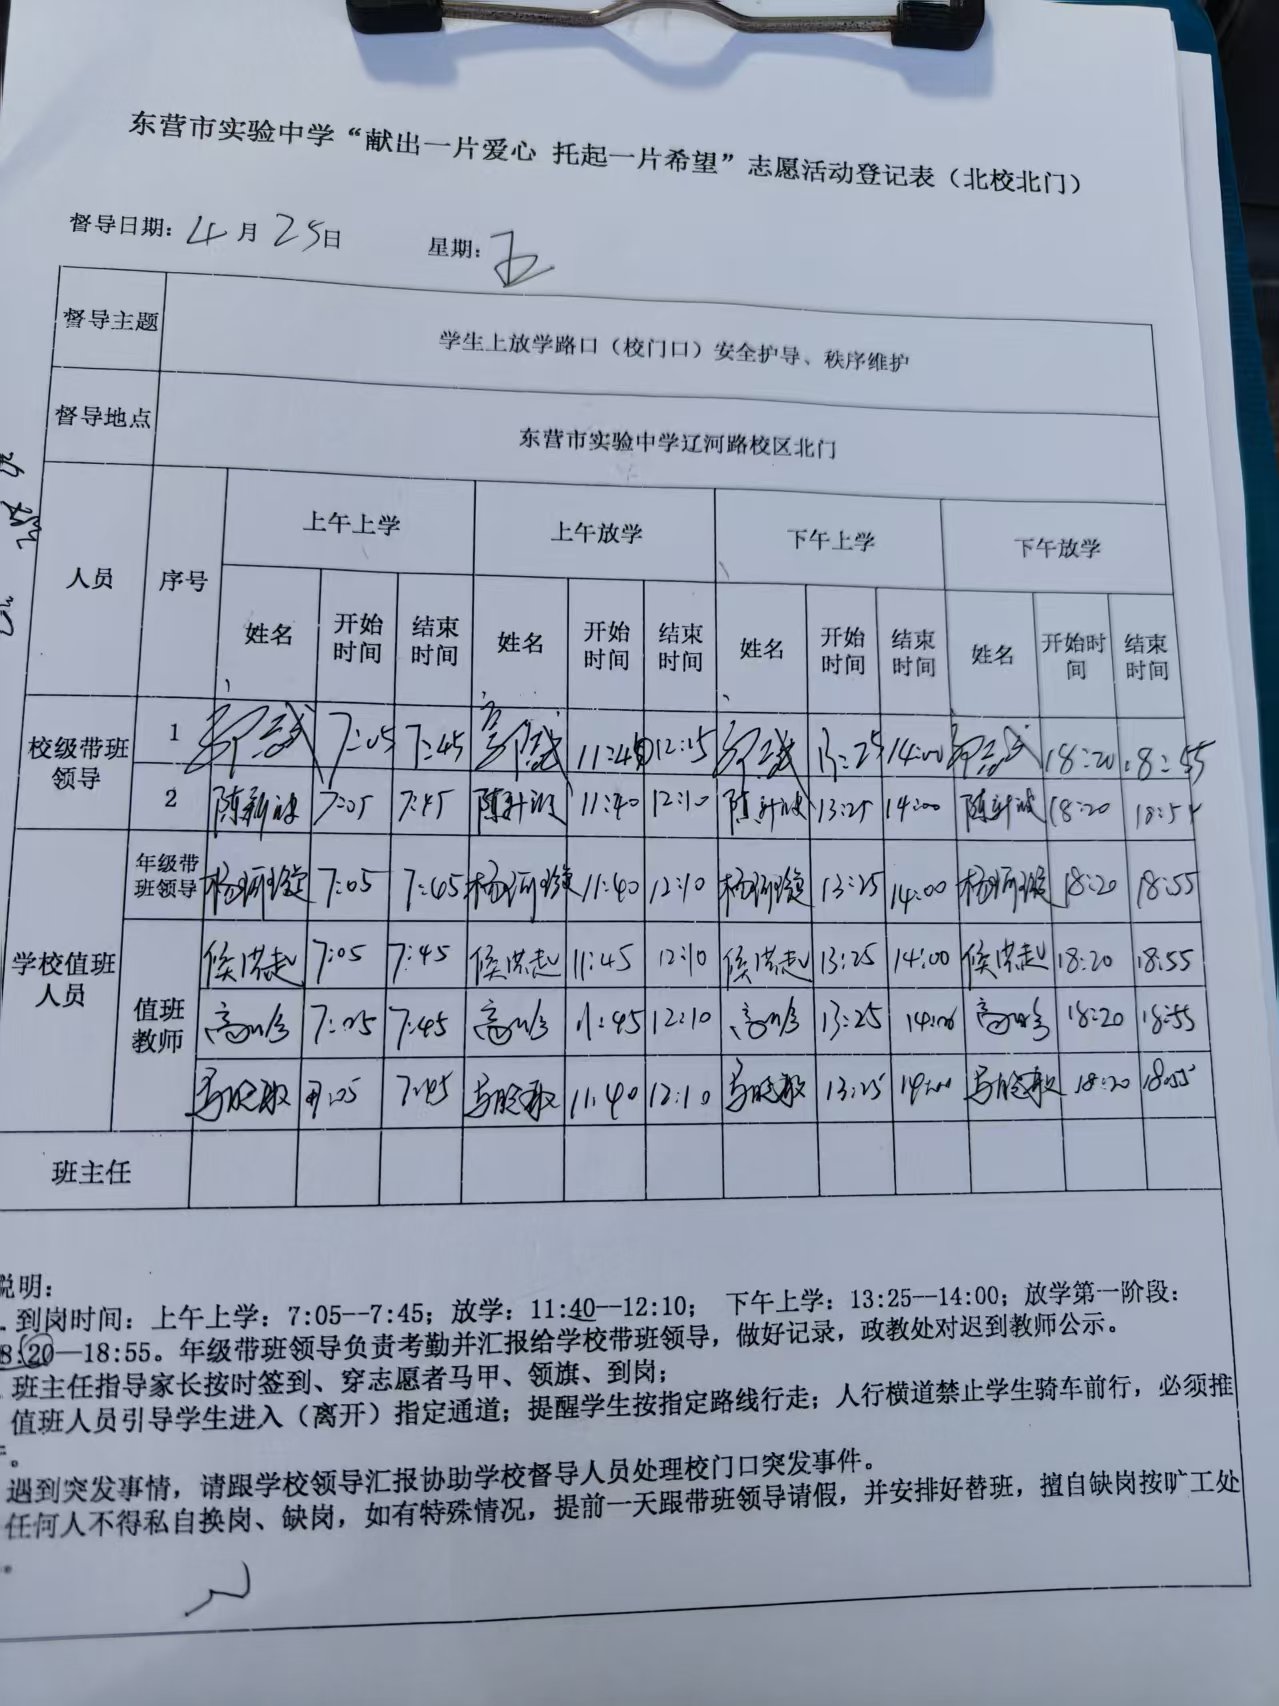 东营市实验中学“献出一片爱心 托起一片希望”志愿活动登记表（北校北门）
督导日期：4月25日 星期：五
督导主题 学生上放学路口（校门口）安全护导、秩序维护
督导地点 东营市实验中学辽河路校区北门
人员 序号 上午上学 上午放学 下午上学 下午放学
姓名 开始时间 结束时间 姓名 开始时间 结束时间 姓名 开始时间 结束时间 姓名 开始时间 结束时间
校级带班领导
1 7:05 7:45 11:40 12:15 13:25 14:00 18:20 18:55
2 陈新波 7:05 7:45 陈新波 11:40 12:10 陈新波 13:25 14:00 陈新波 18:20 18:55
学校值班人员
年级带班领导 杨珂璇 7:05 7:45 杨珂璇 11:40 12:10 杨珂璇 13:25 14:00 杨珂璇 18:20 18:55
值班教师
侯洪起 7:05 7:45 侯洪起 11:45 12:10 侯洪起 13:25 14:00 侯洪起 18:20 18:55
7:05 7:45 11:45 12:10 13:25 14:00 18:20 18:55
7:05 7:45 11:40 12:10 13:25 14:00 18:20 18:55
班主任
说明：
到岗时间：上午上学：7:05--7:45；放学：11:40—12:10； 下午上学：13:25--14:00；放学第一阶段：
8:20—18:55。年级带班领导负责考勤并汇报给学校带班领导，做好记录，政教处对迟到教师公示。
班主任指导家长按时签到、穿志愿者马甲、领旗、到岗；
值班人员引导学生进入（离开）指定通道；提醒学生按指定路线行走；人行横道禁止学生骑车前行，必须推
。
遇到突发事情，请跟学校领导汇报协助学校督导人员处理校门口突发事件。
任何人不得私自换岗、缺岗，如有特殊情况，提前一天跟带班领导请假，并安排好替班，擅自缺岗按旷工处
。